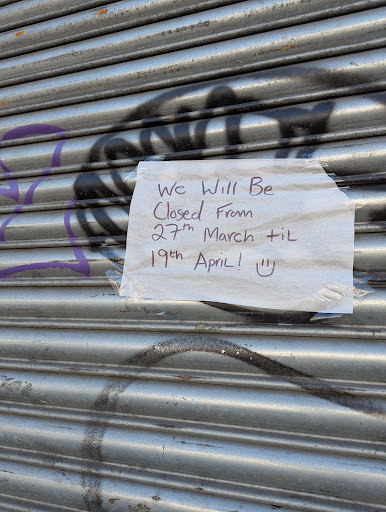 We Will Be
Closed From
27th March til
19th April! =)